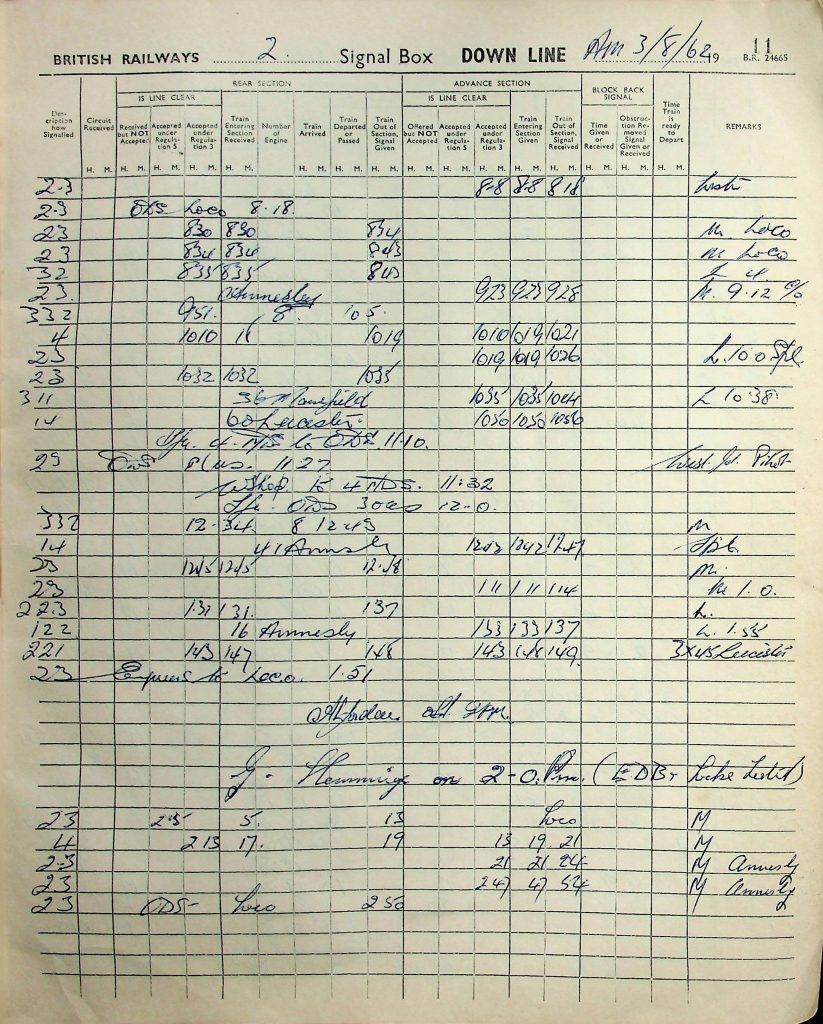 BRITISH RAILWAYS 2 Signal Box DOWN LINE Am 3/8/62 19 11
B.R. 24665
REAR SECTION ADVANCE SECTION BLOCK BACK SIGNAL
IS LINE CLEAR IS LINE CLEAR
Description how Signalled Circuit Received Received but NOT Accepted Accepted under Regulation 5 Accepted under Regulation 3 Train Entering Section Received Number of Engine Train Arrived Train Departed or Passed Train Out of Section, Signal Given Offered but NOT Accepted Accepted under Regulation 5 Accepted under Regulation 3 Train Entering Section Given Train Out of Section, Signal Received Time Given or Received Obstruction Removed Signal Given or Received Time Train is ready to Depart REMARKS
H. M. H. M. H. M. H. M. H. M. H. M. H. M. H. M. H. M. H. M. H. M. H. M. H. M. H. M. H. M. H. M.
2-3 8-8 8-8 818
2-3 ODS Loco 8-18.
23 830 830 834 M. Loco
23 834 834 843 M Loco
32 835 835 843
23. Annesley 923 923 928 M. 9.12
332 951. 8 105.
4 1010 11 1019 1010 1019 1021
23 1019 1019 1026 L. 10 0 Spl
23 1032 1032 1035
311 36 Mansfield 1035 1035 1044 L 10 38
14 60 Leicester 1050 1050 1056
4 to ODS 11-10.
23 Plus. 11 27 West. Jn. Pilot
to 4 NDS. 11:32
ODS 12-0.
332 12-34 8 1245 M
14 41 Annsly 1242 1242 1247 Spl.
23 1245 1245 12-48 M.
23 111 111 114 M 1.0.
223 131 131. 137 L.
122 16 Annesly 133 133 137 L. 1.55
221 143 147 148 143 148 149 3X45 Leicester
23 Express to Loco. 1.51
off 2pm.
G. Hemmings on 2-0. Pm. (EDBr Lake Listed)
23 2 5 5. 13 Loco M
4 2 13 17. 19 13 19 21 M
2-3 21 21 24 M Annesly
23 247 47 54 M Annesly
23 ODS- Loco 2 50